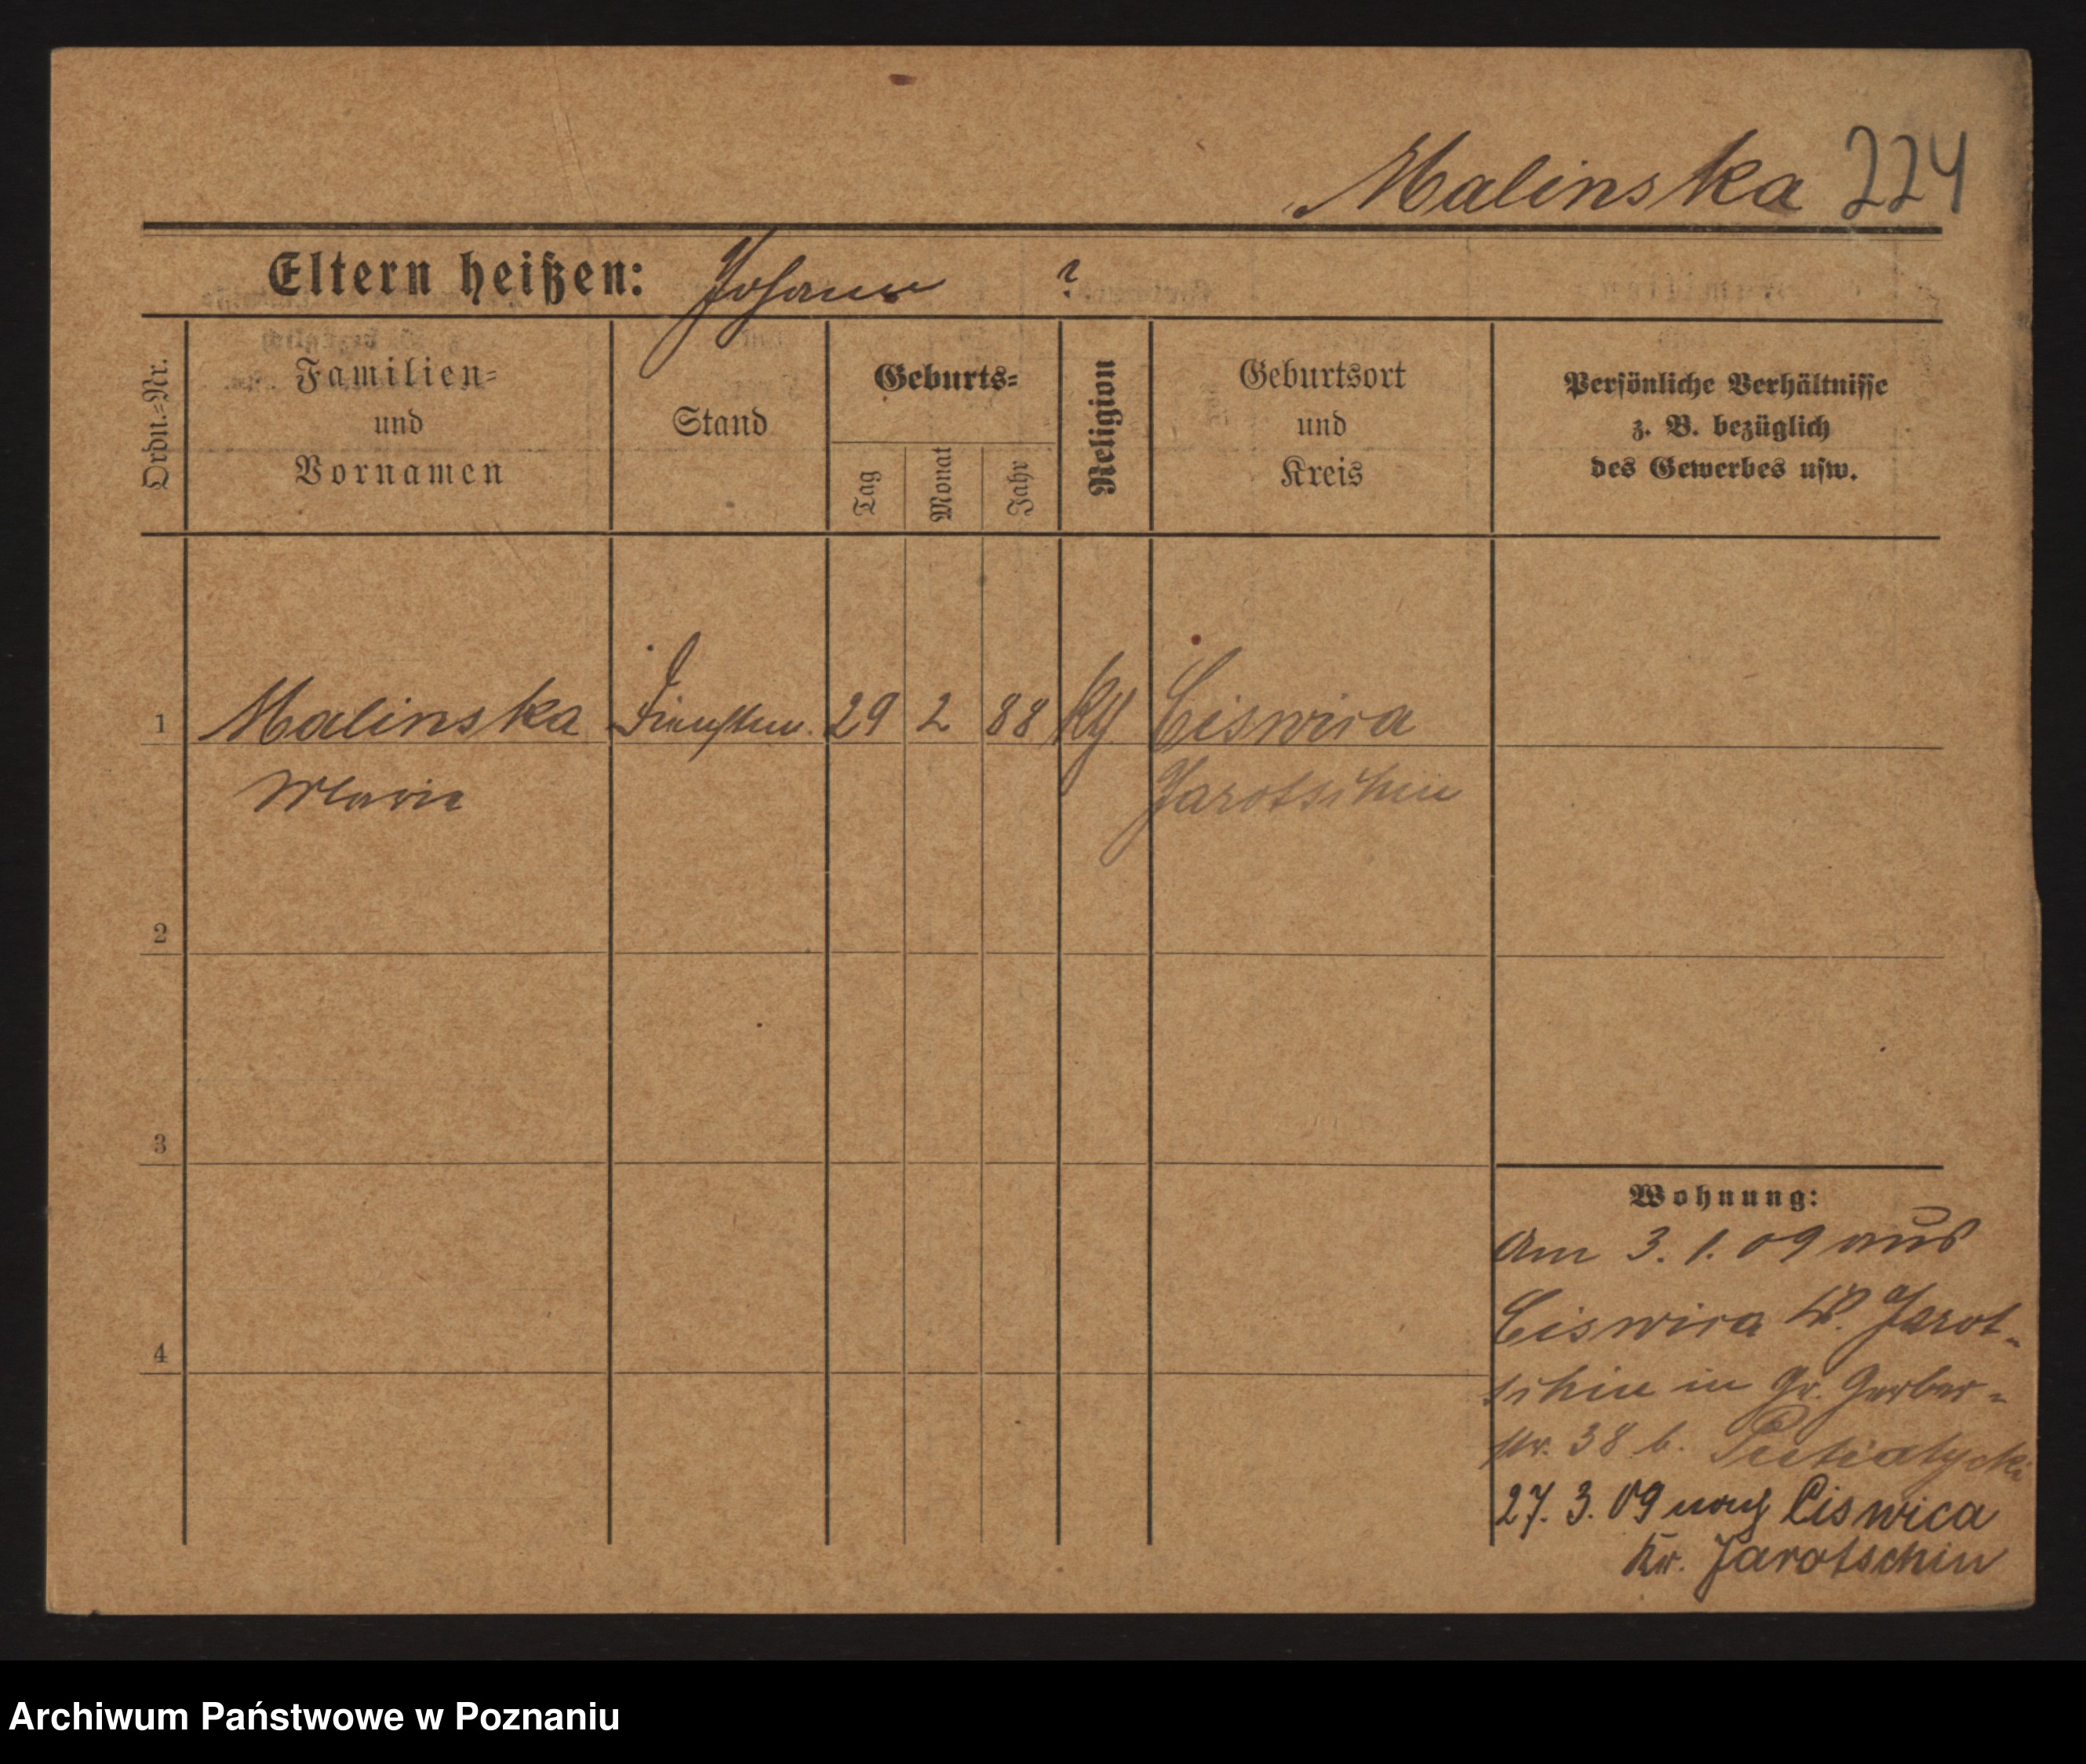 Malinska 224
Eltern heißen: Johann ?
Ordn.-Nr.
Familien-
und
Vornamen
Stand
Geburts-
Tag
Monat
Jahr
Religion
Geburtsort
und
Kreis
Persönliche Verhältnisse
z. B. bezüglich
des Gewerbes usw.
1 Malinska Dienstm. 29 2 88 kth Ciswica
Marie Jarotschin
2
3
4
Wohnung:
Am 3. 1. 09 aus
Ciswica Kr. Jarot-
schin in Gr. Gerber-
str. 38 b.
27. 3. 09 nach Ciswica
Kr. Jarotschin
Archiwum Państwowe w Poznaniu